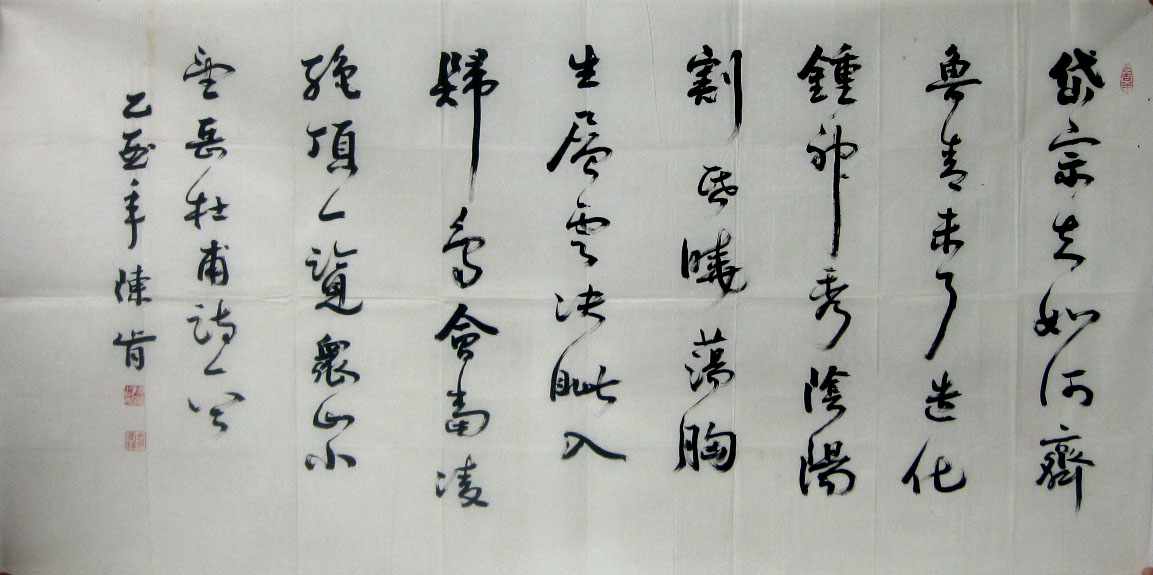 岱宗夫如何齊
魯青未了造化
鍾神秀陰陽
割昏曉蕩胸
生層雲決眦入
歸鳥會當凌
絕頂一覽衆山小
望岳杜甫詩一首
乙酉年陳肯